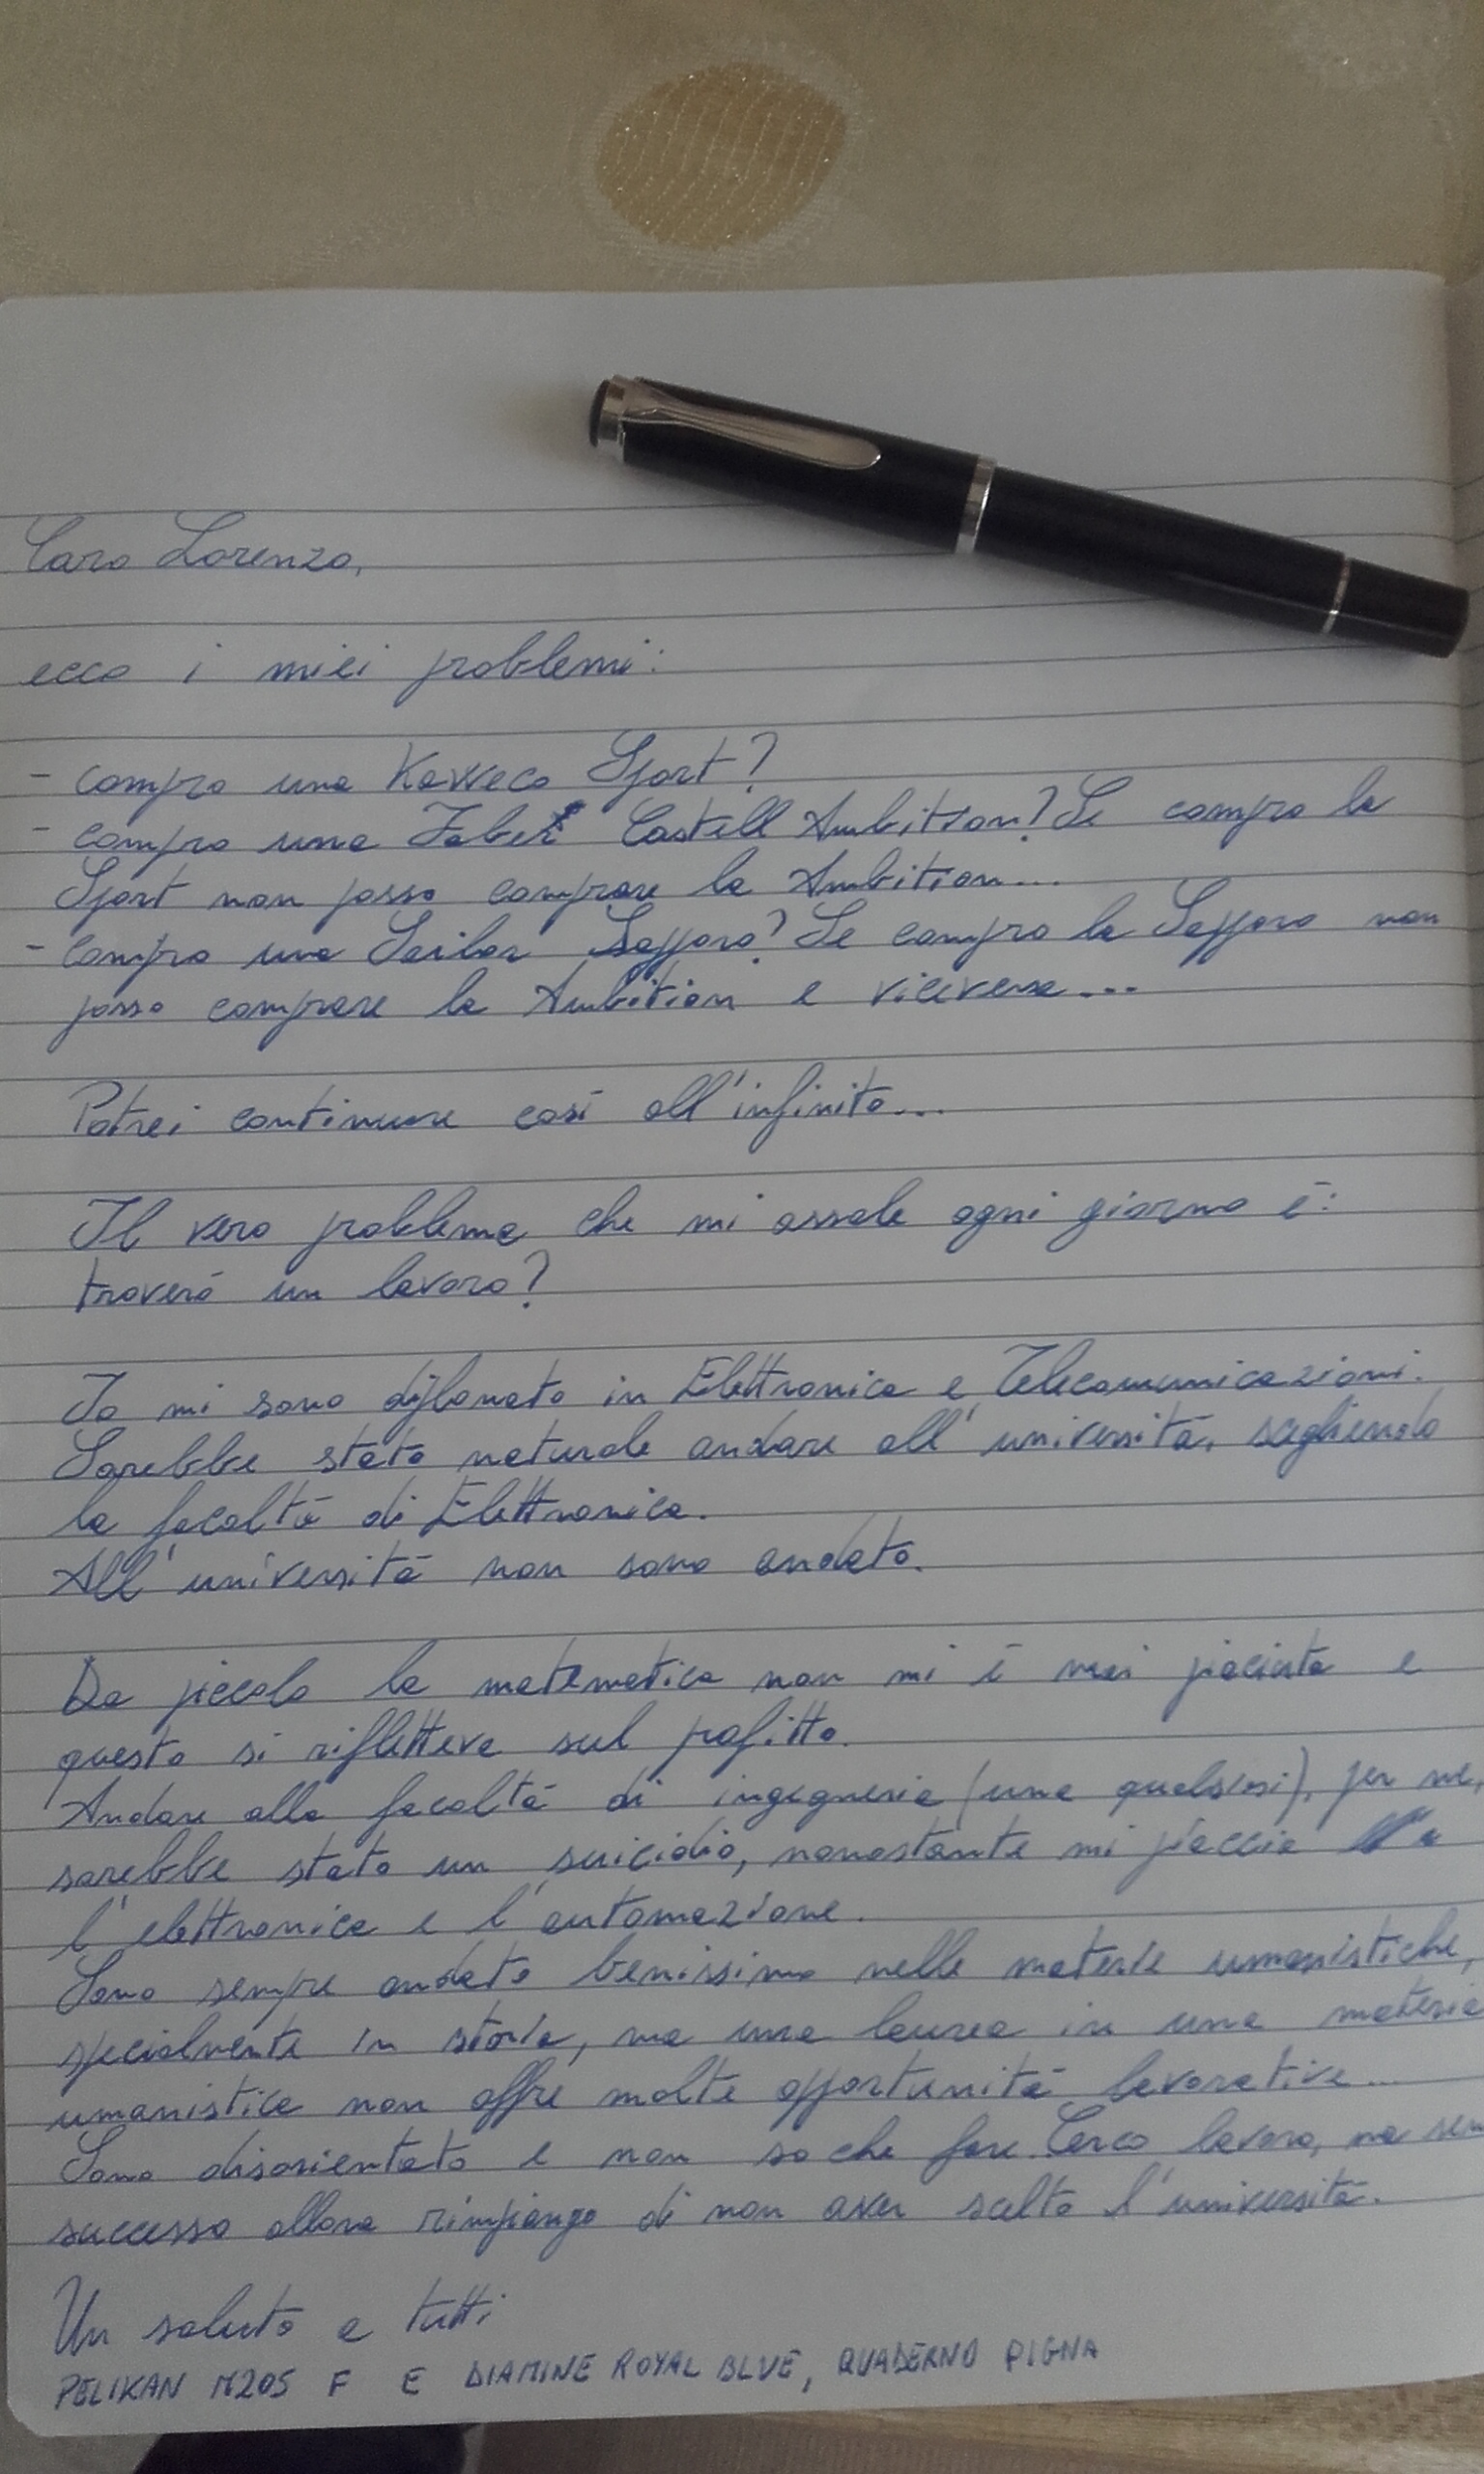 Caro Lorenzo,
ecco i miei problemi:
- compro una Kaweco Sport?
- compro una Faber Castell Ambition? Se compro la
Sport non posso comprare la Ambition...
- compro una Sailor Sapporo? Se compro la Sapporo non
posso comprare la Ambition e viceversa...
Potrei continuare così all'infinito...
Il vero problema che mi assale ogni giorno è:
troverò un lavoro?
Io mi sono diplomato in Elettronica e Telecomunicazioni.
Sarebbe stato naturale andare all'università, scegliendo
la facoltà di Elettronica.
All'università non sono andato.
Da piccolo la matematica non mi è mai piaciuta e
questo si rifletteva sul profitto.
Andare alla facoltà di ingegneria (una qualsiasi), per me,
sarebbe stato un suicidio, nonostante mi piaccia
l'elettronica e l'automazione.
Sono sempre andato benissimo nelle materie umanistiche,
specialmente in storia, ma una laurea in una materia
umanistica non offre molte opportunità lavorative...
Sono disorientato e non so che fare. Cerco lavoro, ma sen
successo allora rimpiango di non aver scelto l'università.
Un saluto a tutti
PELIKAN M205 F E DIAMINE ROYAL BLUE, QUADERNO PIGNA